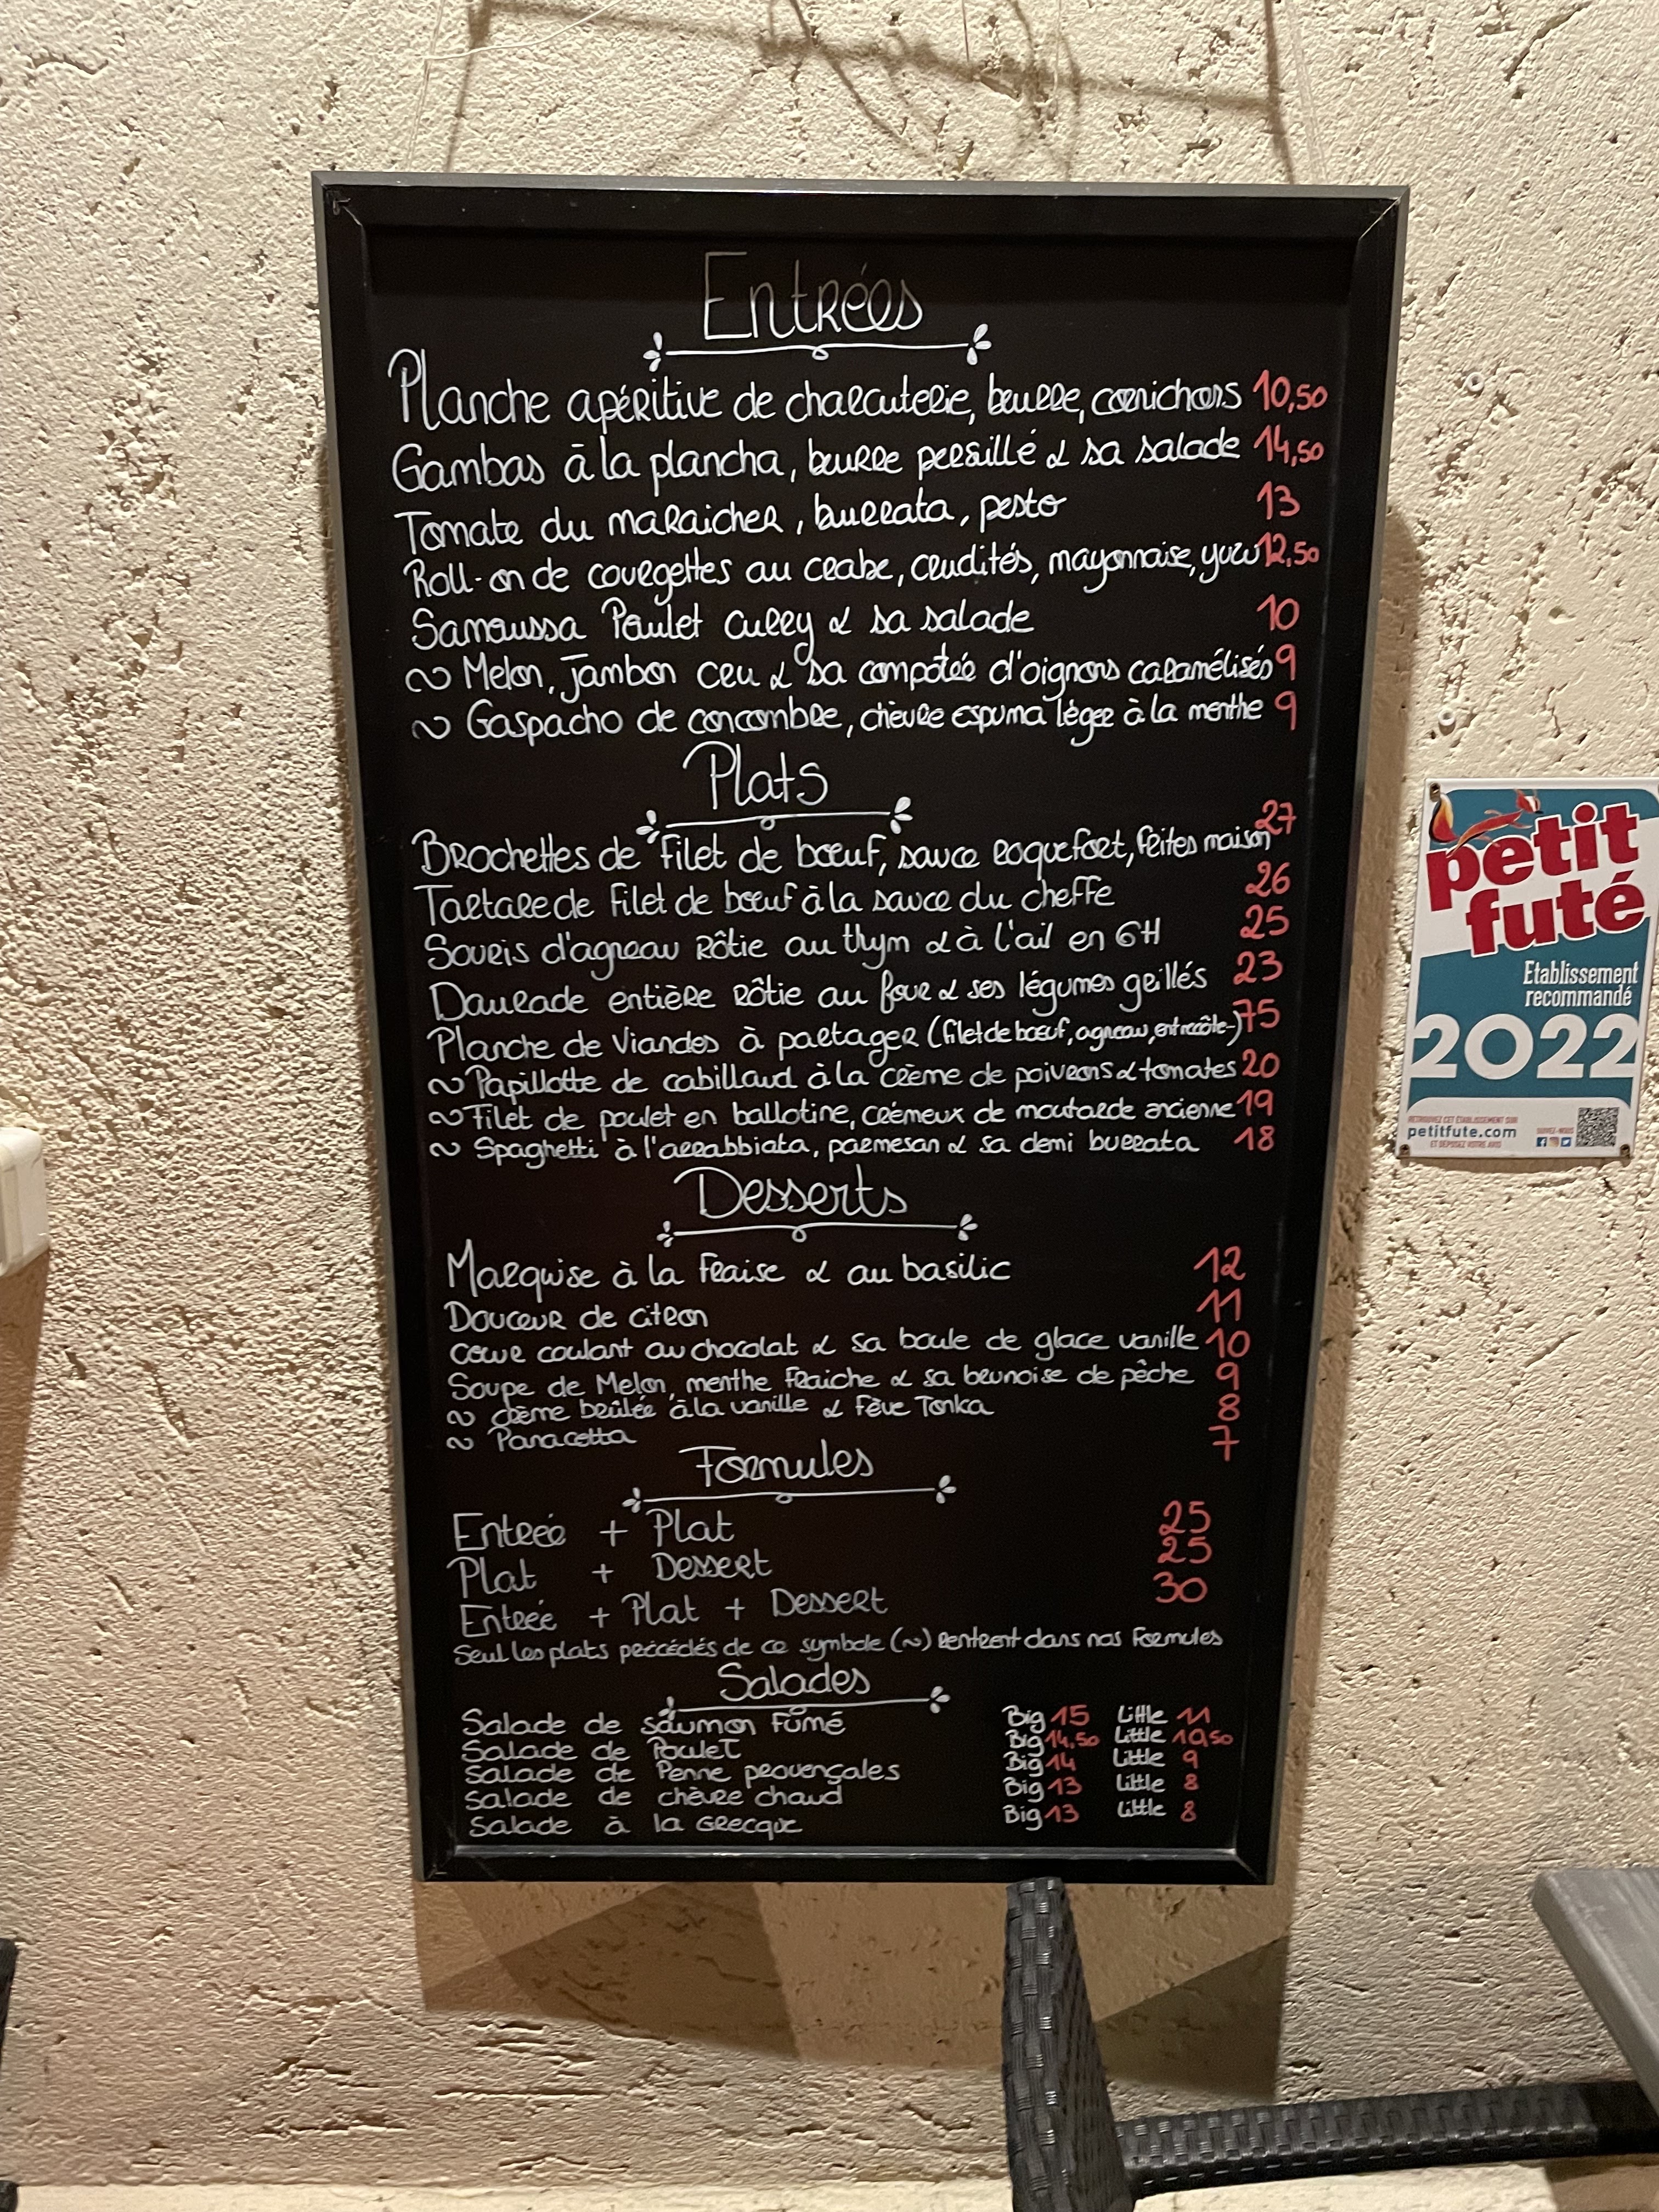 Entrées
Planche apéritive de charcuterie, beurre, cornichons 10,50
Gambas à la plancha, beurre persillé & sa salade 14,50
Tomate du maraicher, burrata, pesto 13
Roll-on de courgettes au crabe, crudités, mayonnaise, yuzu 12,50
Samoussa Poulet curry & sa salade 10
~ Melon, jambon cru & sa compotée d'oignons caramélisés 9
~ Gaspacho de concombre, chèvre espuma légee à la menthe 9
Plats
Brochettes de filet de bœuf, sauce roquefort, frites maison 27
Tartare de filet de bœuf à la sauce du cheffe 26
Souris d'agneau rôtie au thym & à l'ail en 6H 25
Daurade entière rôtie au four & ses légumes grillés 23
Planche de viandes à partager (filet de bœuf, agneau, entrecôte-) 75
~ Papillotte de cabillaud à la crème de poivrons & tomates 20
~ Filet de poulet en ballotine, crémeux de moutarde ancienne 19
~ Spaghetti à l'arrabbiata, parmesan & sa demi burrata 18
Desserts
Marquise à la fraise & au basilic 12
Douceur de citron 11
coeur coulant au chocolat & sa boule de glace vanille 10
Soupe de Melon, menthe fraiche & sa brunoise de pêche 9
~ crème brûlée à la vanille & Fève Tonka 8
~ Panacotta 7
Formules
Entrée + Plat 25
Plat + Dessert 25
Entrée + Plat + Dessert 30
Seul les plats précédés de ce symbole (~) rentrent dans nos formules
Salades
Salade de saumon fumé Big 15 Little 11
Salade de Poulet Big 14,50 Little 10,50
Salade de Penne provençales Big 14 Little 9
Salade de chèvre chaud Big 13 Little 8
Salade à la Grecque Big 13 Little 8
petit
futé
Etablissement
recommandé
2022
RETROUVEZ CET ÉTABLISSEMENT SUR
petitfute.com
ET DÉPOSEZ VOTRE AVIS
SUIVEZ-NOUS